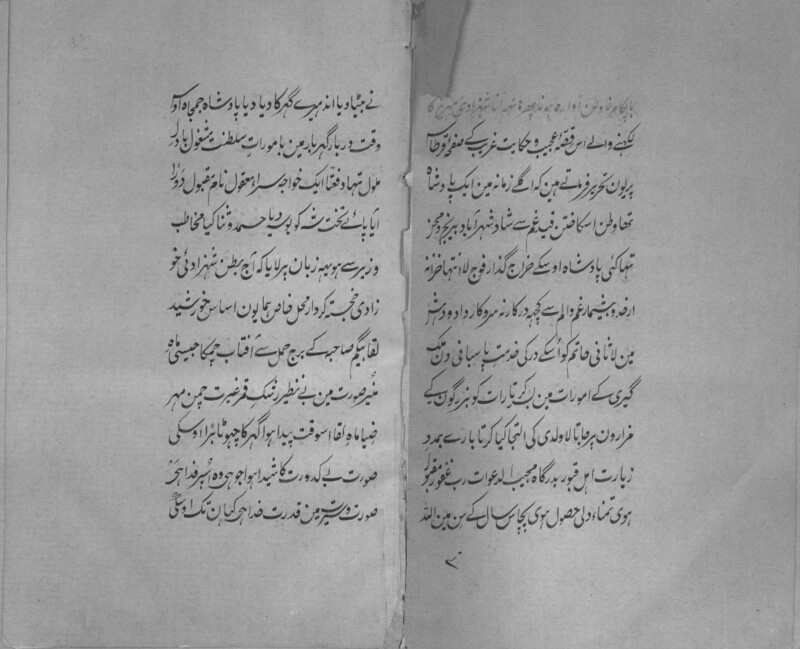 باپکا ہرنا وطن آوارہ ہونا پھر شہزادی مہرنج کا
لکہنے والے اس قصۂ عجیب و حکایت غریب کے صفحۂ قرطاس
پر یون تحریر فرماتے ہین کہ اگلے زمانہ مین ایک پادشاہ
تہا وطن اسکا ختن قید غم سے شاد شہر آباد بیرنج و محن
تہا کئی پادشاہ اوسکے خراج گذار فوج لا انتہا خزانہ
از حد و بیشمار غم و الم سے کچہہ درکار نہ سروکار داد و دہش
مین لاثانی حاتم کو اُسکے در کی خدمت پاسبانی دن ملک
گیری کے امورات مین بسر کرتا رات کو بزرگون کے
مزارون پر جاتا لاولدی کی التجا کیا کرتا بارے بمدد
زیارت اہل قبور بدرگاہ مجیب الدعوات رب غفور مقبول
ہوی تمناء دلی حصول ہوی پچاس سال کے سن مین اللہ
نے بیٹا دیا اندہیرے گہر کا دیا دیا پادشاہ جمجاہ اوس
وقت دربار گہربار مین بامورات سلطنت مشغول با دل
ملول تہا دفعتاً ایک خواجہ سرا معقول نام مقبول دوڑا
آیا پائے تخت شہ کو بوسہ دیا حمد و ثنا کیا مخاطب
وزیر سے ہو یہہ زبان پر لایا کہ آج بطن شہزادئی خو
زادی خجستہ کردار محل خاص ہمایون اساس خورشید
لقا بیگم صاحبہ کے برج حمل سے آفتاب چمکا جیسی ماہ
منیر صورت مین بے نظیر رشک قمر غیرت چمن مہر
ضیا ماہ لقا اسوقت پیدا ہوا گہر کا چہوٹا بڑا اوسکی
صورت بے کدورت کا شیدا ہوا جو ہی وہ اسپر فدا ہی
صورت و سیرت مین قدرت خدا ہی کہان تک اوسکی